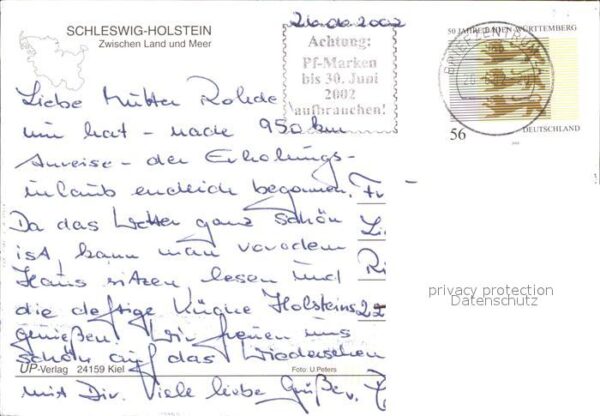 SCHLESWIG-HOLSTEIN
Zwischen Land und Meer
20.06.2002
Achtung:
Pf-Marken
bis 30. Juni
2002
aufbrauchen!
50 JAHRE BADEN-WÜRTTEMBERG
BRIEFZENTRUM
56
DEUTSCHLAND
Liebe Mutter Rohde
nun hat - nach 950 km
Anreise - der Erholungs-
urlaub endlich begonnen.
Da das Wetter ganz schön
ist, kann man vor dem
Haus sitzen, lesen und
die deftige Küche Holsteins
genießen! Wir freuen uns
schön auf das Wiedersehen
mit Dir. Viele liebe Grüße
Fr
Li
Ri
22
privacy protection
Datenschutz
UP-Verlag 24159 Kiel
Foto: U.Peters